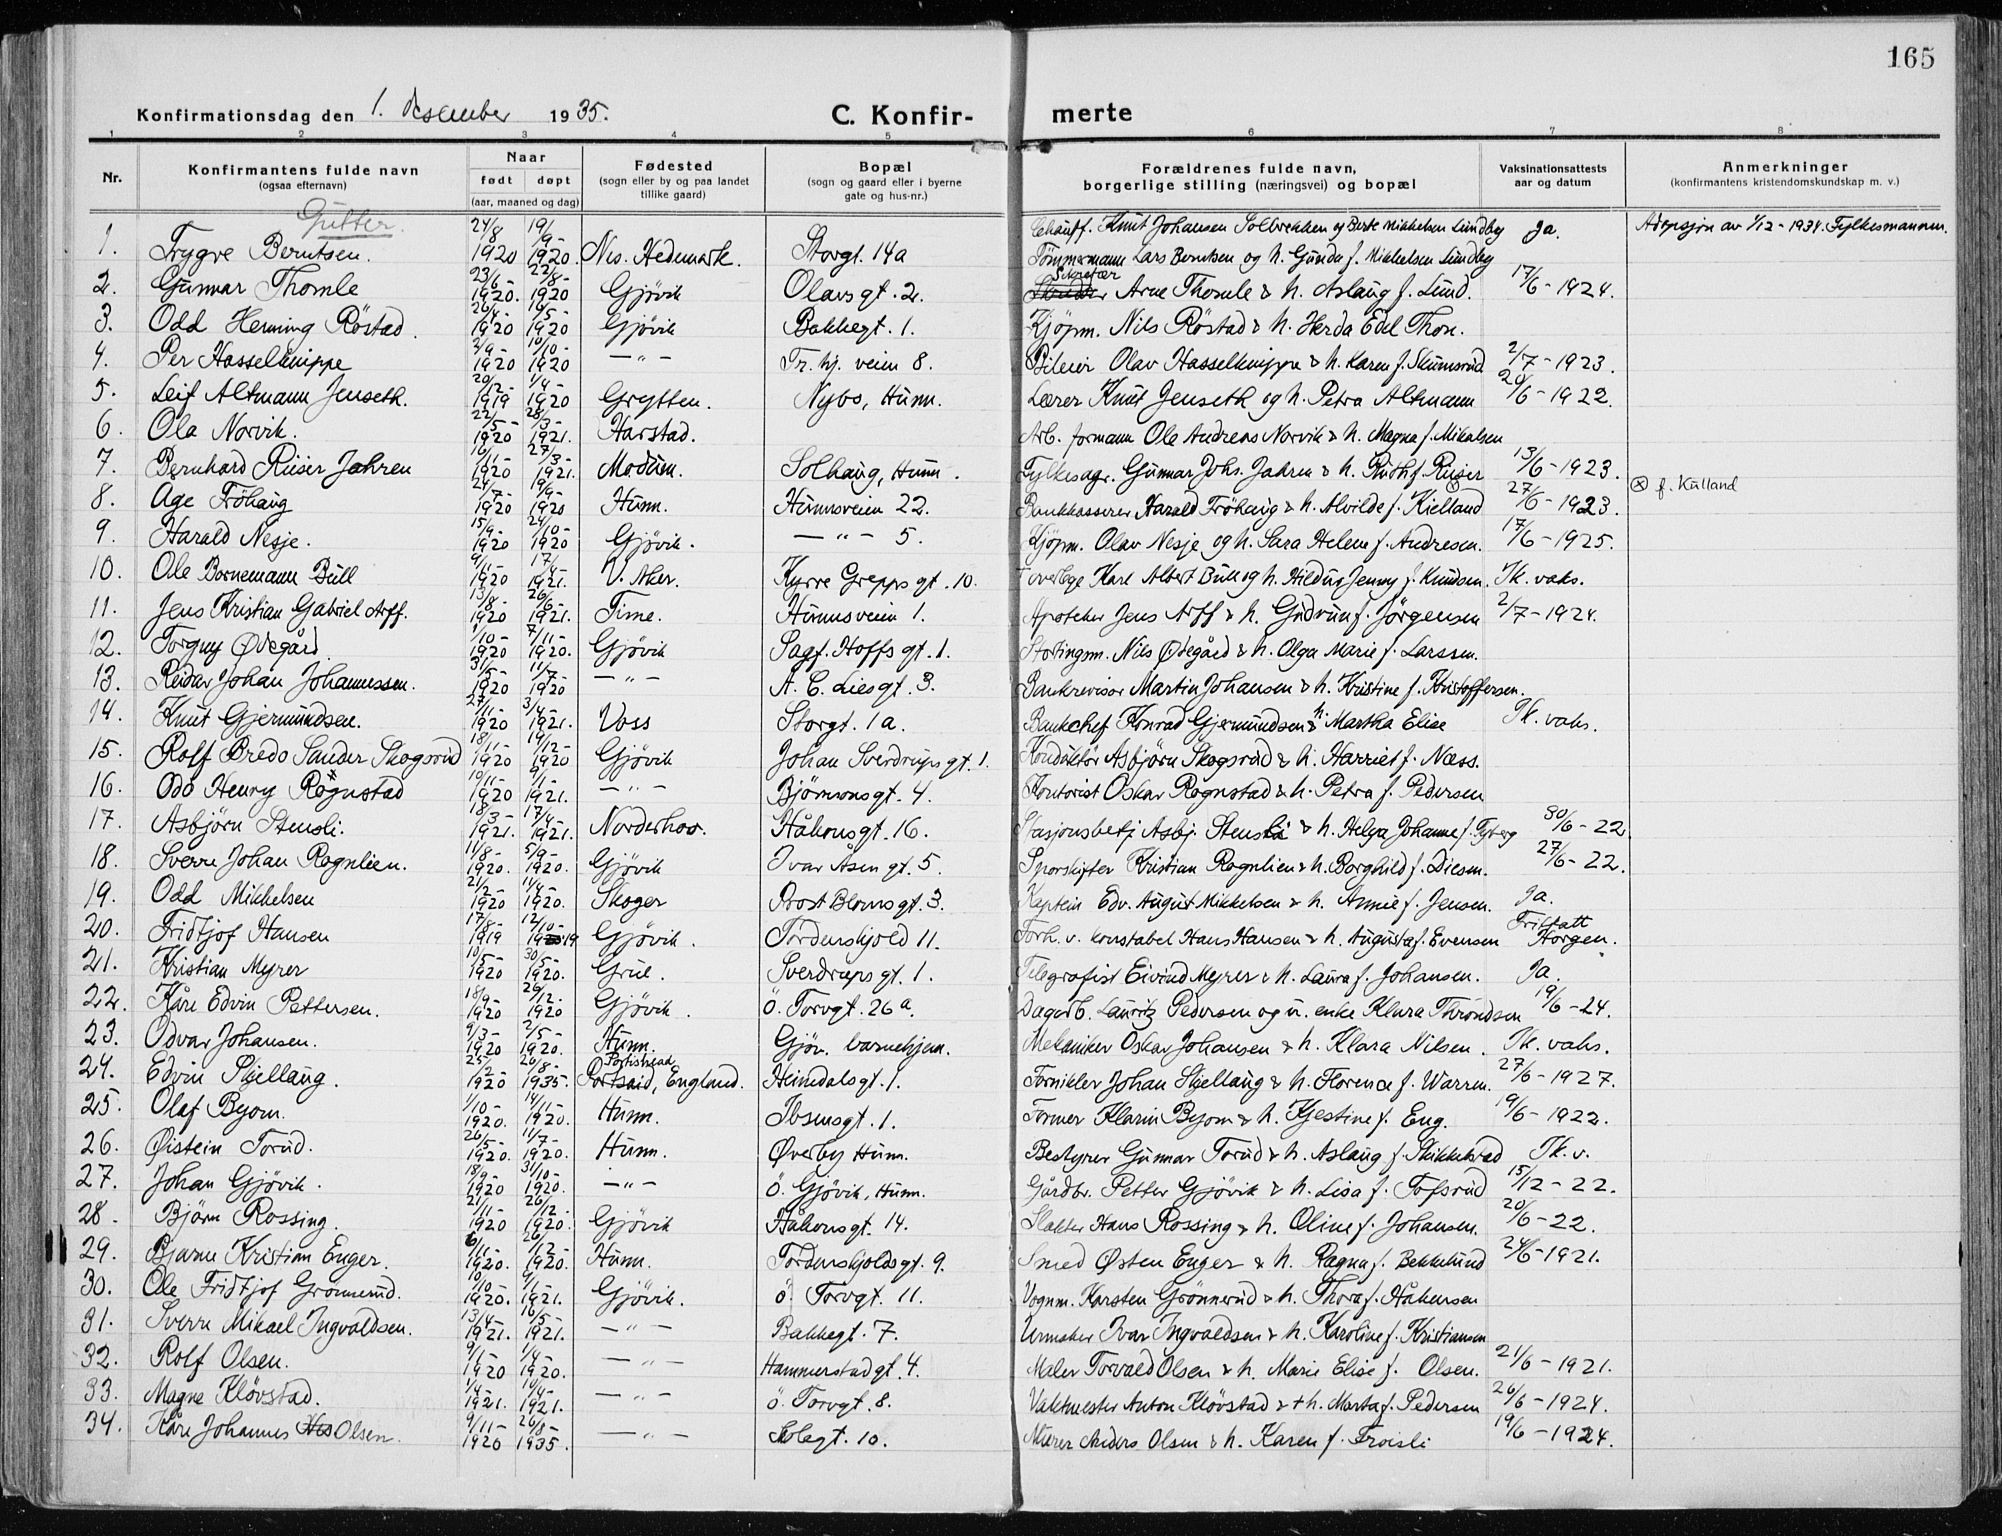 165
Konfirmationsdag den 1. desember 1935.
C. Konfir-merte
1 2 3 4 5 6 7 8
Nr.
Konfirmantens fulde navn
(ogsaa efternavn)
Naar
født døpt
(aar, maaned og dag)
Fødested
(sogn eller by og paa landet
tillike gaard)
Bopæl
(sogn og gaard eller i byerne
gate og hus-nr.)
Forældrenes fulde navn,
borgerlige stilling (næringsvei) og bopæl
Vaksinationsattests
aar og datum
Anmerkninger
(konfirmantens kristendomskundskap m. v.)
Gutter.
1. Trygve Berntsen. 24/8 1920 19/9- 1920. Nes. Hedemark. Storgt. 14a Chauff. Knut Johansen Solbrekken og Berte Mikkelsen Lundby Ja. Adopsjon av 1/12-1934. Fylkesmannen.
Tömmermann Lars Berntsen og h. Gunda f. Mikkelsen Lundby
2. Gunnar Thomle 23/6- 1920. 22/8- 1920 Gjövik Olavsgt. 2. Sekretær Arne Thomle & h. Aslaug f. Lund. 17/6-1924.
3. Odd Henning Röstad. 1920 1920 Gjövik Bakkegt. 1. Kjöpm. Nils Röstad & h. Herda Edel Thon.
4. Per Hasselknippe 2/9- 1920 10/10- 1920 -"- Tr. hj. veien 8. Bileier Olav Hasselknippe & h. Karen f. Skumsrud 2/7-1923.
5. Leif Altmann Jenseth. 20/12- 1919 1/4- 1920 Grytten. Nybo, Hunn. Lærer Knut Jenseth og h. Petra Altmann 20/6-1922.
6. Ola Norvik. 22/5- 1920 28/3- 1921. Harstad. Arb. formann Ole Andreas Norvik & h. Magna f. Mikalsen
7. Bernhard Ruser Jahren 16/11- 1920 27/3- 1921. Modum. Solhaug, Hunn. Fylkesagr. Gunnar Johs. Jahren & h. Ruth f. Ruser 13/6-1923.
⊗ f. Kulland
8. Åge Fröhaug 24/7- 1920 19/9- 1920 Hunn. Hunnsveien 22. Bankkasserer Harald Fröhaug & h. Alvilde f. Kielland 27/6-1923.
9. Harald Nesje. 15/9- 1920 24/10- 1920 Gjövik. -"- 5. Kjöpm. Olav Nesje og h. Sara Helene f. Andresen. 17/6-1925.
10. Ole Bornemann Bull 9/11- 1920 17/4- 1921. V. Aker. Kyrre Greppsgt. 10. Overlege Karl Albert Bull og h. Hildur Jenny f. Knudsen. Ik. vaks.
11. Jens Kristian Gabriel Arff. 13/8- 1920 26/6- 1921. Time. Hunnsveien 1. Apoteker Jens Arff & h. Gudrun f. Jörgensen 2/7-1924.
12. Torguy Ødegård 1/10- 1920 7/11- 1920. Gjövik Sagf. Hoffsgt. 1. Stortingsm. Nils Ødegård & h. Olga Marie f. Larssen.
13. Reidar Johan Johannessen. 31/5- 1920 11/7- 1920 -"- A. C. Liesgt. 3. Bankrevisor Martin Johansen & h. Kristine f. Kristoffersen.
14. Knut Gjermundsen. 27/11- 1920 3/4- 1921. Voss Storgt. 1a. Bankchef Konrad Gjermundsen & h. Martha Elise Ik. vaks.
15. Rolf Bredo Sander Skogsrud 18/11- 1920 19/12- 1920 Gjövik Johan Sverdrupsgt. 1. Konduktör Asbjörn Skogsrud & h. Harriet f. Næss.
16. Odd Henry Rognstad 10/11- 1920 9/1- 1921. -"- Björnsonsgt. 4. Kontorist Oskar Rognstad & h. Petra f. Pedersen
17. Asbjörn Stensli. 18/3- 1921. 17/4- 1921. Norderhov. Håkonsgt. 16. Stasjonsbetj Asbj. Stensli & h. Helga Johanne f. Fyberg 30/6-22
18. Sverre Johan Rognlien. 11/8- 1920. 5/9- 1920. Gjövik Ivar Åsengt. 5. Sporskifter Kristian Rognlien & h. Borghild f. Diesen. 27/6-22.
19. Odd Mikkelsen 21/2- 1920 11/4- 1920. Skoger Prost Blomsgt. 3. Kaptein Edv. August Mikkelsen & h. Annie f. Jensen. Ja.
20. Fridtjof Hansen 17/8- 1919 12/10- 1919 Gjövik. Tordenskjold 11. Forh. v. konstabel Hans Hansen & h. Augusta f. Evensen Fritatt Horgen.
21. Kristian Myrer 10/5- 1920 30/5- 1920. Grue. Sverdrupsgt. 1. Telegrafist Eivind Myrer & h. Laura f. Johansen. Ja.
22. Kåre Edvin Pettersen. 18/9- 1920 26/12- 1920 Gjövik. ö. Torvgt. 26a. Dagarb. Lauritz Pedersen og u. enke Klara Throndsen 19/6-24.
23. Odvar Johansen. 9/3- 1920 2/5- 1920. Hunn. Gjöv. barnehjem. Mekaniker Oskar Johansen & h. Klara Nilsen. Ik. vaks.
24. Edvin Skjellaug. 25/2- 1920 26/8- 1935. Portislead Portsaid, England. Heimdalsgt. 1. Fornikler Johan Skjellaug & h. Florence f. Warren. 27/6-1927.
25. Olaf Byom. 1/10- 1920. 14/11- 1920. Hunn. Ibsensgt. 1. Former Klarin Byom & h. Kjestine f. Eng. 19/6-1922.
26. Øistein Torud. 26/5- 1920. 11/7- 1920. Hunn. Øverby Hunn. Bestyrer Gunnar Torud & h. Aslaug f. Skikkelstad Ik. v.
27. Johan Gjövik. 18/9- 1920 31/10- 1920. -"- ö. Gjövik, Hunn. Gårdbr. Petter Gjövik & h. Lisa f. Tofsrud 15/12-22.
28. Björn Rossing. 21/11- 1920 26/12- 1920. Gjövik Håkonsgt. 14. Slakter Hans Rossing & h. Oline f. Johansen. 20/6-22.
29. Bjarne Kristian Enger. 6/11- 1920. 26/12- 1920. Hunn. Tordenskjoldsgt. 9. Smed Østen Enger & h. Ragna f. Bekkelund 24/6-1921.
30. Ole Fridtjof Grönnerud. 10/10- 1920. 9/1- 1921. Gjövik. ö. Torvgt. 11. Vognm. Karsten Grönnerud & h. Thora f. Håkensen
31. Sverre Mikael Ingvaldsen. 13/4- 1921. 16/5- 1921. -"- Bakkegt. 7. Urmaker Ivar Ingvaldsen & h. Karoline f. Kristiansen
32. Rolf Olsen. 9/1- 1920 1/4- 1920. -"- Hammerstadgt. 4. Maler Torvald Olsen & h. Marie Elise f. Olsen. 21/6-1921.
33. Magne Klövstad. 1/4- 1921. 1921. -"- ö. Torvgt. 8. Vaktmester Anton Klövstad & +h. Marta f. Pedersen 26/6-1924.
34. Kåre Johannes Olsen. 9/11- 1920 26/8- 1935. -"- Solegt. 10. Murer Anders Olsen & h. Karen f. Froisli 19/6-1924.